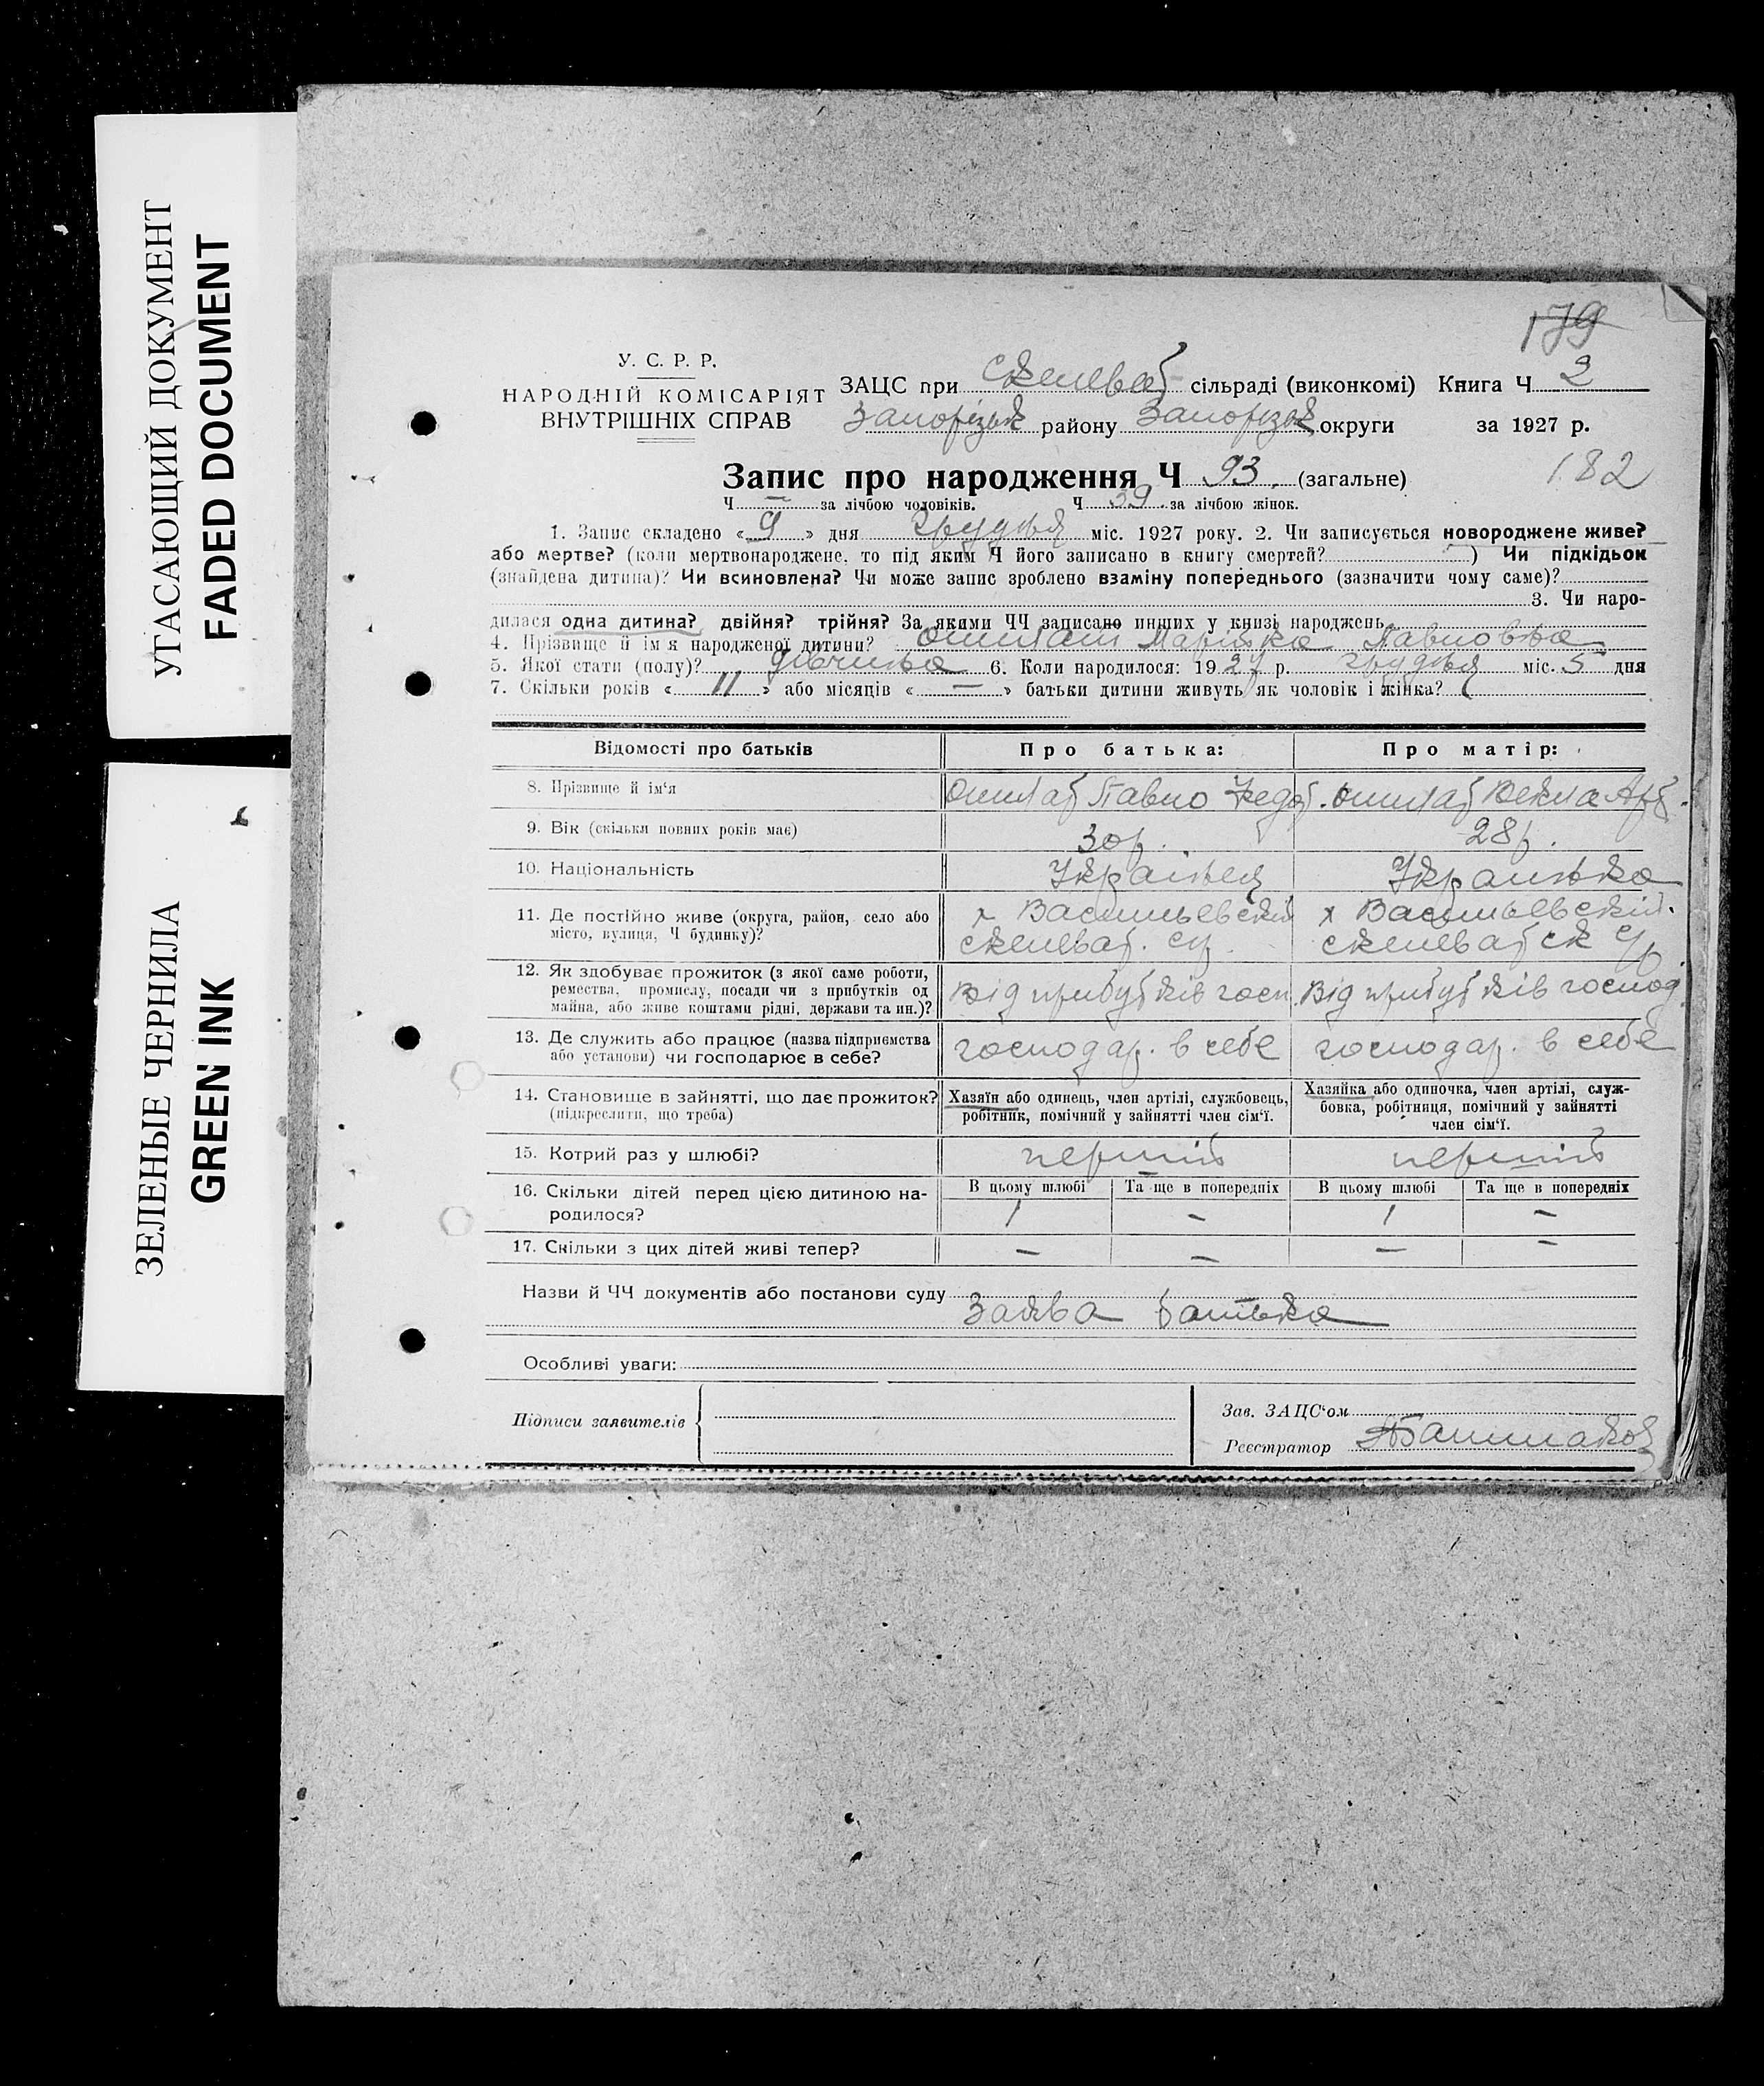 УГАСАЮЩИЙ ДОКУМЕНТ
FADED DOCUMENT
ЗЕЛЕНЫЕ ЧЕРНИЛА
GREEN INK
179
У. С. Р. Р.
НАРОДНІЙ КОМІСАРІЯТ
ВНУТРІШНІХ СПРАВ
ЗАЦС при Скелеват сільраді (виконкомі) Книга Ч 2
Запорізьк району Запорізьк округи за 1927 р.
Запис про народження Ч 93. (загальне) 182
Ч — за лічбою чоловіків. Ч 39. за лічбою жінок.
1. Запис складено « 9 » дня грудня міс. 1927 року. 2. Чи записується новороджене живе?
або мертве? (коли мертвонароджене, то під яким Ч його записано в книгу смертей? ) Чи підкідьок
(знайдена дитина)? Чи всиновлена? Чи може запис зроблено взаміну попереднього (зазначити чому саме)?
3. Чи наро-
дилася одна дитина? двійня? трійня? За якими ЧЧ записано инших у книзі народжень
4. Прізвище й ім'я народженої дитини? Марійка Павловна
5. Якої стати (полу)? дівчина 6. Коли народилося: 1927 р. грудня міс. 5 дня
7. Скільки років « 11 » або місяців « — » батьки дитини живуть як чоловік і жінка?
Відомості про батьків
Про батька:
Про матір:
8. Прізвище й ім'я
Павло Федот.
Векла Арт.
9. Вік (скільки повних років має)
30 р.
28 р.
10. Національність
Українец
Украинка
11. Де постійно живе (округа, район, село або
місто, вулиця, Ч будинку)?
х Васильевский
Скелеват.
х Васильевский.
скелеватск
12. Як здобуває прожиток (з якої саме роботи,
ремества, промислу, посади чи з прибутків од
майна, або живе коштами рідні, держави та ин.)?
Від прибутків госп.
Від прибутків господ.
13. Де служить або працює (назва підприємства
або установи) чи господарює в себе?
господар. в себе
господар. в себе
14. Становище в зайнятті, що дає прожиток?
(підкреслити, що треба)
Хазяїн або одинець, член артілі, службовець,
робітник, помічний у зайнятті член сім'ї.
Хазяйка або одиночка, член артілі, служ-
бовка, робітниця, помічний у зайнятті
член сім'ї.
15. Котрий раз у шлюбі?
перший
перший
16. Скільки дітей перед цією дитиною на-
родилося?
В цьому шлюбі
Та ще в попередніх
В цьому шлюбі
Та ще в попередніх
1 — 1 —
17. Скільки з цих дітей живі тепер?
— — — —
Назви й ЧЧ документів або постанови суду
Заява батька
Особливі уваги:
Підписи заявителів
Зав. ЗАЦС'ом
Реєстратор Башмаков